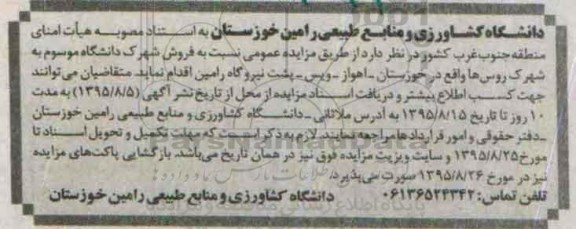 دانشگاه کشاورزی و منابع طبیعی رامین خوزستان به استناد مصوبه هیأت امنای
منطقه جنوب غرب کشور در نظر دارد از طریق مزایده عمومی نسبت به فروش شهرک دانشگاه موسوم به
شهرک روس‌ها واقع در خوزستان - اهواز - ویس - پشت نیروگاه رامین اقدام نماید. متقاضیان می‌توانند
جهت کسب اطلاع بیشتر و دریافت اسناد مزایده از محل از تاریخ نشر آگهی (۱۳۹۵/۸/۵) به مدت
۱۰ روز تا تاریخ ۱۳۹۵/۸/۱۵ به آدرس ملاثانی - دانشگاه کشاورزی و منابع طبیعی رامین خوزستان
- دفتر حقوقی و امور قراردادها مراجعه نمایند. لازم به ذکر است که مهلت تکمیل و تحویل اسناد تا
مورخ ۱۳۹۵/۸/۲۵ و سایت ویزیت مزایده فوق نیز در همان تاریخ می‌باشد. بازگشایی پاکت‌های مزایده
نیز در مورخ ۱۳۹۵/۸/۲۶ صورت می‌پذیرد.
تلفن تماس: ۰۶۱۳۶۵۲۴۳۴۲ دانشگاه کشاورزی و منابع طبیعی رامین خوزستان